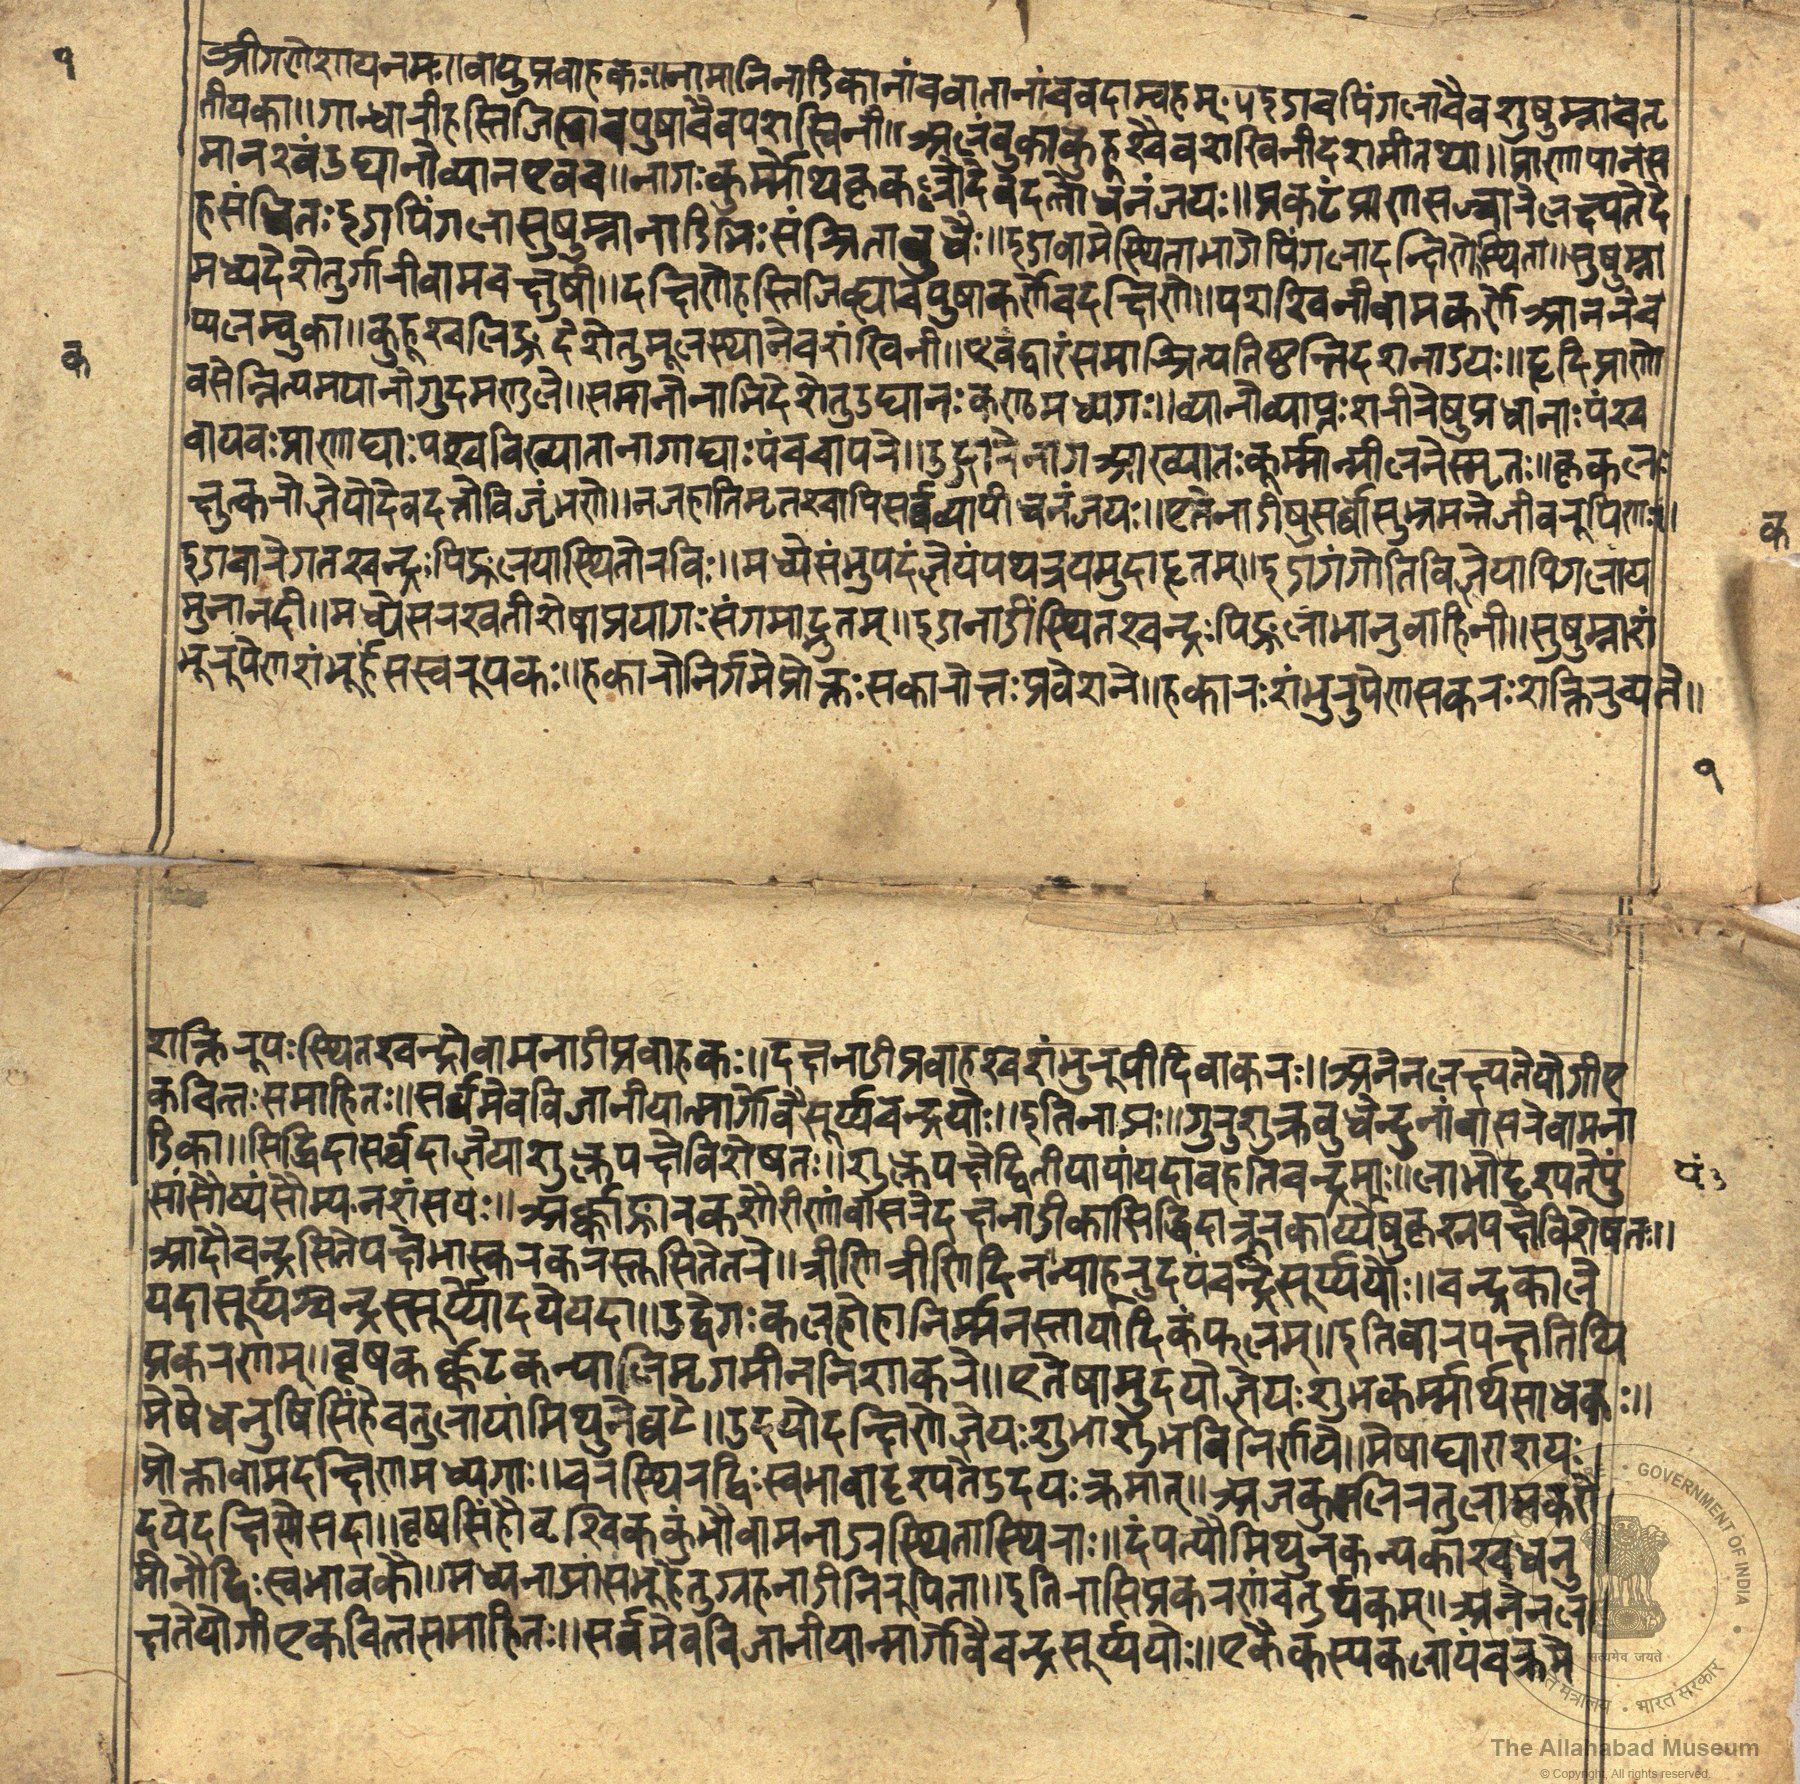 १
श्रीगणेशायनमः॥वायुप्रवाहकः॥नामानिनाडिकानांचवातानांचवदाम्यहम्ः५इडाचपिंगलाचैवशुषुम्नाचतृ
तीयका॥गान्धारीहस्तिजिह्वाचपुषाचैवपशस्विनी॥अलंबुकाकुहूश्चैवशखिनीदशमीतथा॥प्राणापानस
मानश्चंउद्यानोव्यानएवच॥नागःकुर्म्मोथकृकलोदेवदत्तोधनंजयः॥प्रकटंप्राणसञ्चारंलक्ष्यतेदे
हसंस्थितः इडापिंगलासुषुम्नानाडिभिःसंश्रिताबुधैः॥इडावामेस्थिताभागेपिंगलादक्षिणेस्थिता॥सुषुम्ना
मध्यदेशेतुर्गारीवामचक्षुषी॥दक्षिणेहस्तिजिव्हाचपुषाकर्णेचदक्षिणे॥पशश्विनीवामकर्णेआननेच
प्यलम्बुका॥कुहूश्चलिङ्गदेशेतुमूलेस्थानेचशंखिनी॥एवंद्वारंसमाश्रित्यतिष्ठन्तिदशनाडयः॥हृदिप्राणो
वसेन्नित्यमपानोगुदमण्डले॥समानोनाभिदेशेतुउद्यानःकण्ठमध्यगः॥व्यानोव्याप्तःशरीरेषुप्रधानाःपंश्च
वायवःप्राणाद्याःपश्चविख्यातानागाद्याःपंचवापरे॥उद्गारेनागआख्यातःकूर्म्मान्मीलनेस्मृतः॥कृकलः
क्षुत्करोज्ञेयोदेवदत्तोविजृंभणे॥नजहातिमृतश्चापिसर्व्वव्यापीधनंजयः॥एतेनाडीषुसर्व्वासुभ्रमन्तेजीवरूपिणः॥
इडाचारेगतश्चन्द्रःपिङ्गलेयास्थितोरविः॥मध्येसंभुपदंज्ञेयंपथत्रयमुदाहृतम्॥इडागंगेतिविज्ञेयापिंगलाय
मुनानदी॥मध्येसरश्वतीशेषाप्रयागःसंगमाद्भुतम्॥इडानाडींस्थितश्चन्द्रःपिङ्गलाभानुवाहिनी॥सुषुम्नाशं
भूरूपेणशंभूर्हंसस्वरूपकः॥हकारोनिर्गमेप्रोक्तःसकारोत्तःप्रवेशने॥हकारःशंभुरुपेणसकरःशक्तिरुच्यते॥
क
क
१
शक्तिरूपःस्थितश्चन्द्रोवामनाडीप्रवाहकः॥दक्षनाडीप्रवाहश्चशंभुरूपीदिवाकरः॥अनेनलक्ष्यतेयोगीए
कचित्तःसमाहितः॥सर्वमेवविजानीयात्मार्गेवैसूर्य्यचन्द्रयोः॥इतिनाडयः॥गुरुशुक्रबुधेन्दुनांवासरेवामना
डिका॥सिद्धिदासर्वदाज्ञेयाशुक्लेपक्षेविशेषतः॥शुक्लेपक्षेद्वितीयायांयदावहतिचन्द्रमाः॥लोभोदृश्यतेपुं
सांसौष्यंसौम्यःनशंसयः॥अर्क्काङ्गारकशौरीणांवासरेदक्षनाडीकासिद्धिदाक्रूरकार्य्येषुकृस्नपक्षेविशेषतः॥
पं३
आदौचन्द्रसितेपक्षेभास्करकरस्तुसितेतरे॥त्रीणित्रीणिदिनन्याहूरुदयंचन्द्रसूर्य्ययोः॥चन्द्रकाले
यदासूर्य्यश्चन्द्रस्सूर्य्योदयेयदा॥उद्वेगःकलहोहानिर्म्मनस्तापादिकंफलम्॥इतिवारपक्षतिथि
प्रकरणम्॥वृषकर्क्कटकन्यालिमृगमीननिशाकरे॥एतेषामुदयोज्ञेयःशुभकर्म्मार्थसाधकः॥
मेषेधनुषिसिंहेचतुलायांमिथुनेघटे॥उदयोदक्षिणेज्ञेयःशुभाशुभविनिर्णये॥मेषाद्याराशयः
प्रोक्तावामदक्षिणमध्यगाः॥चरस्थिरद्विःस्वभावादृश्यतेउदयःक्रमात्॥अजकुलीरतुलामकरो
दयेदक्षिणेसदा॥वृषसिंहौवृश्विककुंभौवामनाडीस्थितास्थिराः॥दंपत्यौमिथुनकन्यकाश्चधनु
मीनौद्विःस्वभावकौ॥मध्यनाड्यांसंभुहेतुग्रहनाडीनिरूपिता॥इतिराशिप्रकरणंचतुर्थकम्॥अनेनल
क्षतेयोगीएकचित्तसमाहितः॥सर्वमेवविजानीयान्मार्गेवैचन्द्रसूर्य्ययोः॥एकैकस्यकलायंचक्रमे
GOVERNMENT OF INDIA
सत्यमेव जयते
भारत सरकार
The Allahabad Museum
© Copyright, All rights reserved.